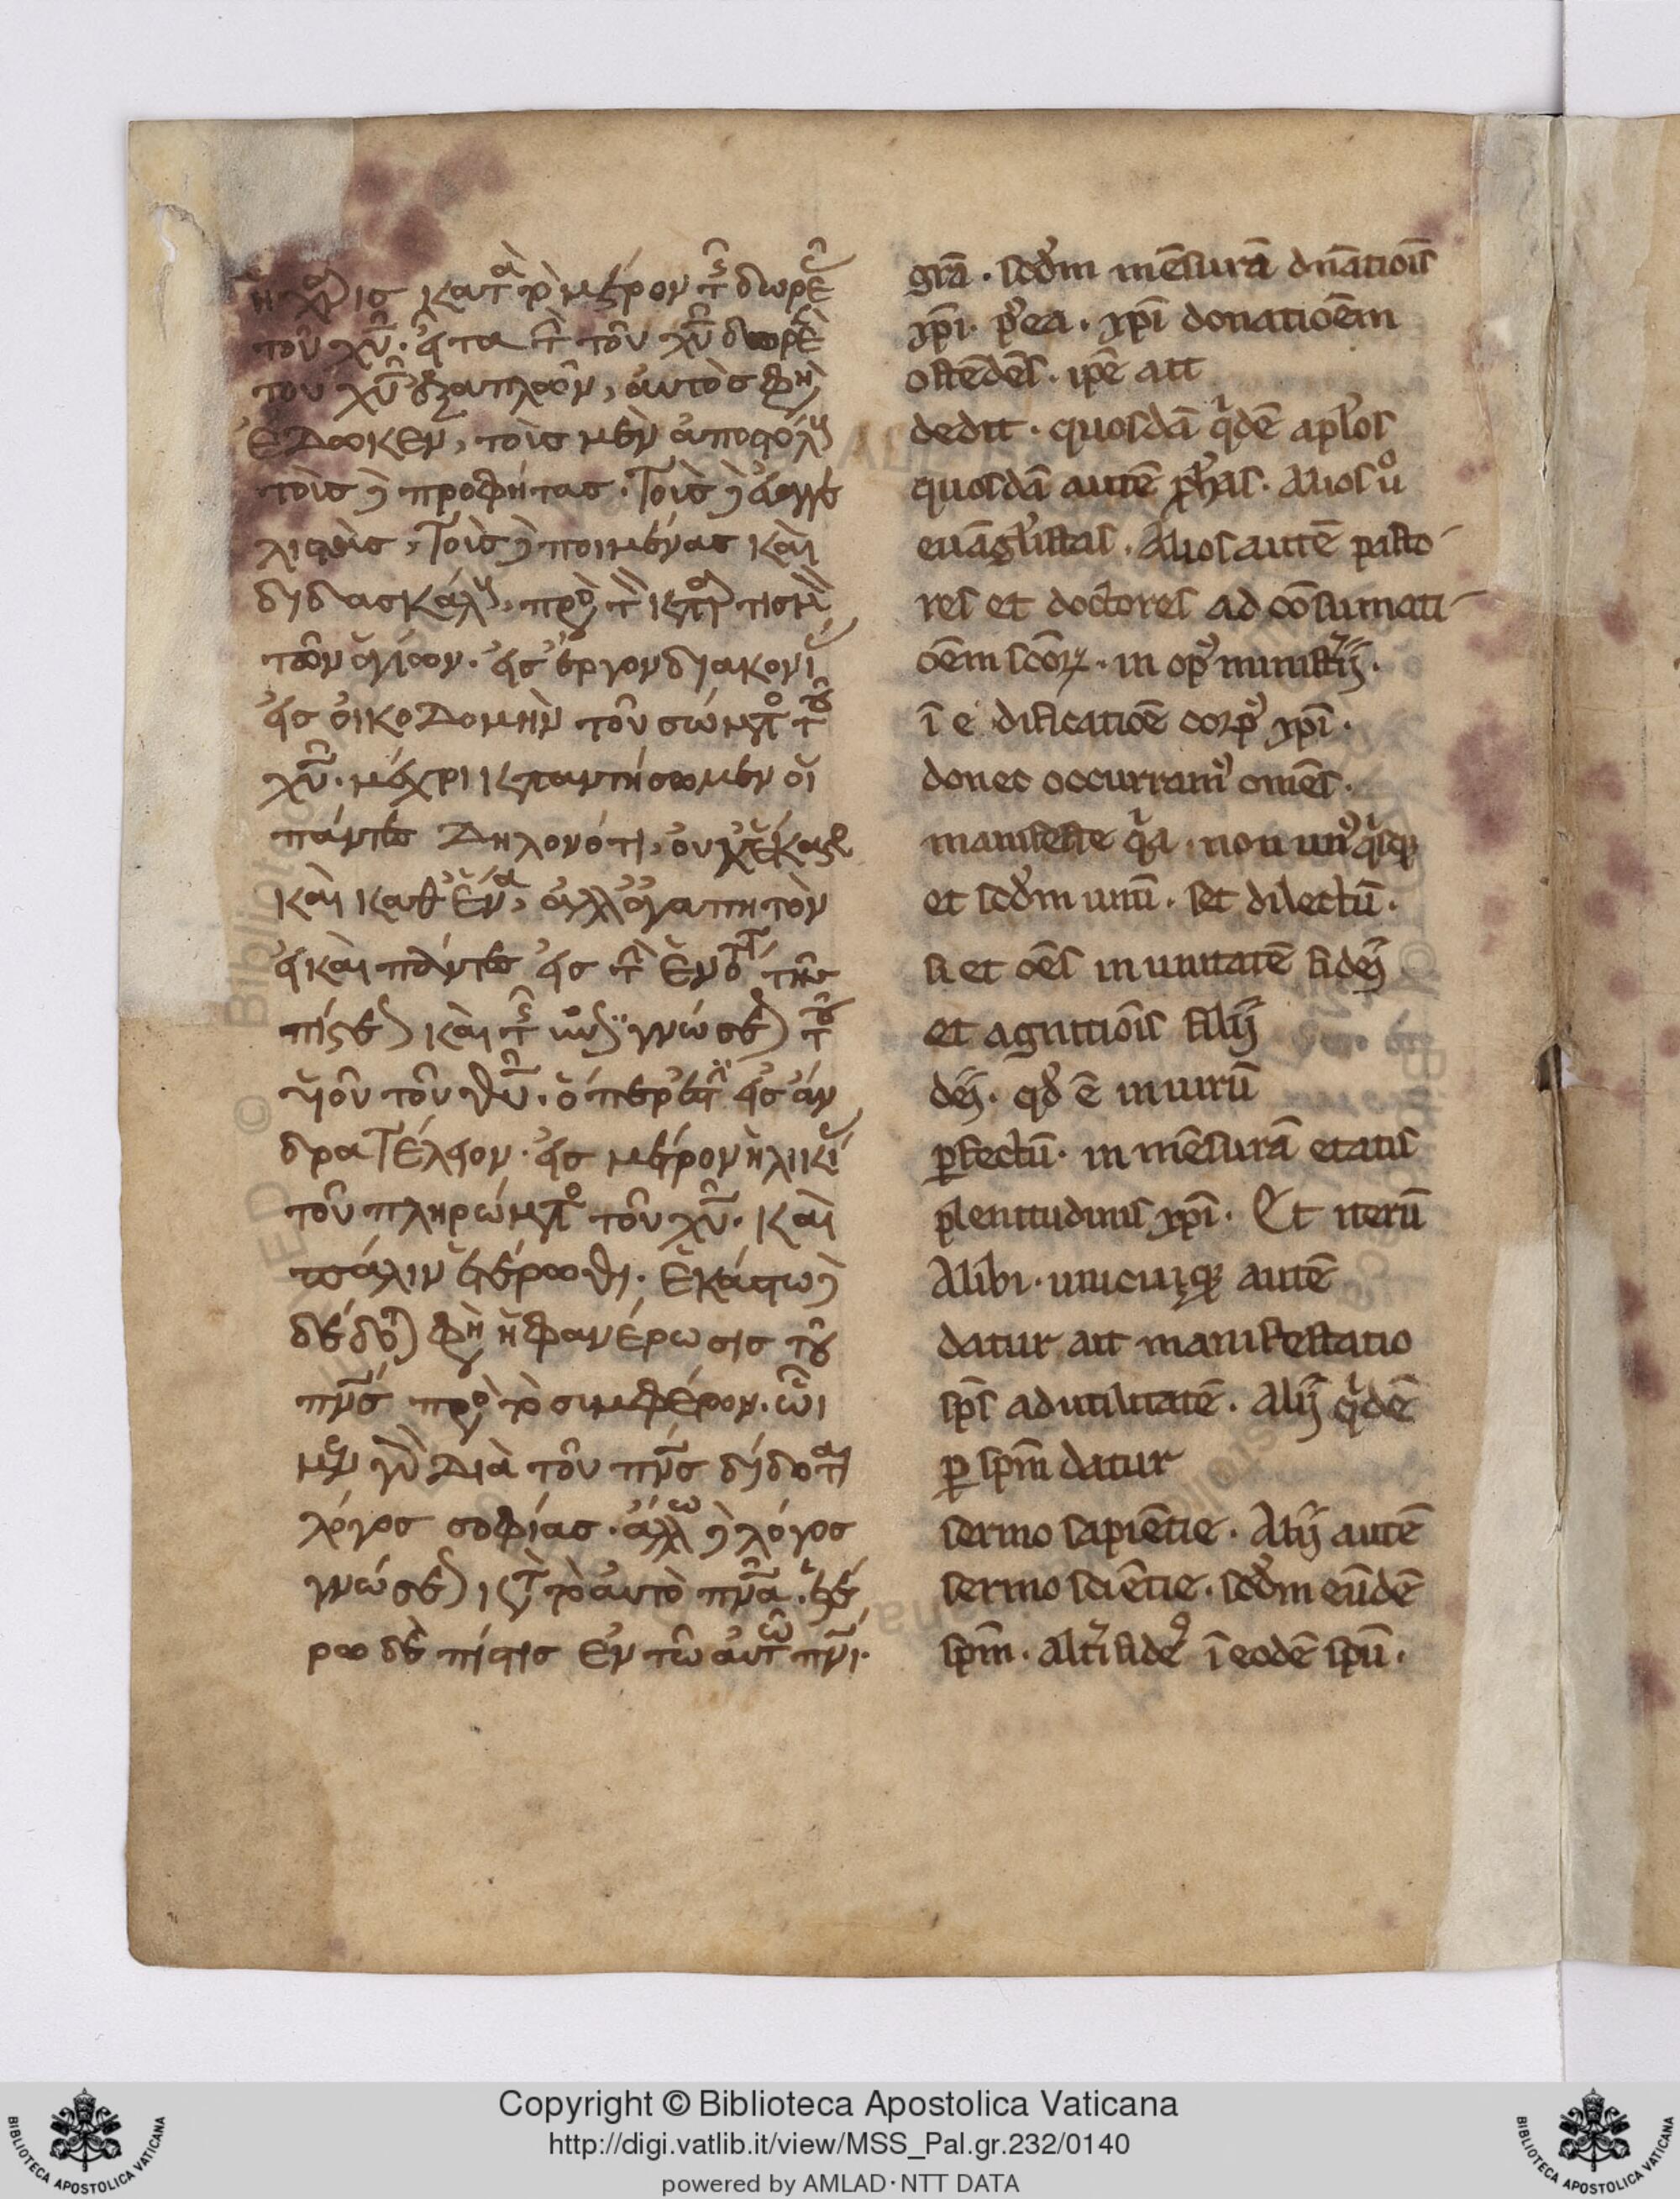 ἡ χάρις κατὰ τὸ μέτρον τῆς δωρεᾶς
τοῦ χυ̅. εἶτα τὴν τοῦ χυ̅ δωρεὰν
τοῦ χυ̅ ἐξαπλῶν, αὐτὸς φησὶν
ἔδωκεν, τοῖς μὲν ἀποστόλους
τοῖς δὲ προφήτας. τοῖς δὲ εὐαγγε
λιστὰς, τοῖς δὲ ποιμένας καὶ
διδασκάλους, πρὸς τὸν καταρτισμὸν
τῶν ἁγίων. εἰς ἔργον διακονίας
εἰς οἰκοδομὴν τοῦ σώματος τοῦ
χυ̅. μέχρι καταντήσωμεν οἱ
πάντες δηλονότι, οὐχ ἕκαστος
καὶ καθ ἕνα, ἀλλ ἀγαπητὸν
εἰ καὶ πάντες εἰς τὴν ἑνότητα τῆς
πίστεως καὶ τῆς γνώσεως τοῦ
υἱοῦ τοῦ θυ̅. ὅπερ ἐστὶν εἰς ἄν
δρα τέλειον. εἰς μέτρον ἡλικίας
τοῦ πληρώματος τοῦ χυ̅. καὶ
πάλιν ἑτέρωθι. ἑκάστω δὲ
δίδοται φησὶν ἡ φανέρωσις τοῦ
πνς̅ πρὸς τὸ συμφέρον. ὧι
μὲν γὰρ διὰ τοῦ πνς̅ δίδοται
λόγος σοφίας. ἄλλω δὲ λόγος
γνώσεως κατὰ τὸ αὐτὸ πνα̅. ἑτέ
ρω δὲ πίστις ἐν τῶ αὐτῶ πνι̅.
gr̄a . scd̓m mēsurā dn̄atiōis
xp̄i . pp̓ea . xp̄i donatiōem
ostēdēs . ip̄e ait
dedit . quosdā qͥdē apl̓os
quosdā autē ph̓as . Alios uͦ
euāgl̓istas . Alios autē pasto
res et doctores ad cōsumati
ōem scōꝝ . in op̓ minist̓ij .
ī edificatiōe corp̓ xp̄i .
donec occurram̓ om̄es .
manifeste qͥa . non un̓ qͥsqꝫ
et scd̓m unū . set dilectū .
si et ōes in unitatē fidei
et agnitiōis filij
dei . qd̓ ē in uirū
ꝑfectū . in mēsurā etatis
plenitudinis xp̄i . Et iterū
Alibi . unicuiqꝫ autē
datur ait manifestatio
sp̄s ad utilitatē . Alij qͥdē
ꝑ sp̄m datur
sermo sapiētie . Alij autē
sermo sciētie . scd̓m eūdē
sp̄m . Alt̓i fide̓ ī eodē sp̄u .
Copyright © Biblioteca Apostolica Vaticana
http://digi.vatlib.it/view/MSS_Pal.gr.232/0140
powered by AMLAD·NTT DATA
BIBLIOTECA APOSTOLICA VATICANA
BIBLIOTECA APOSTOLICA VATICANA